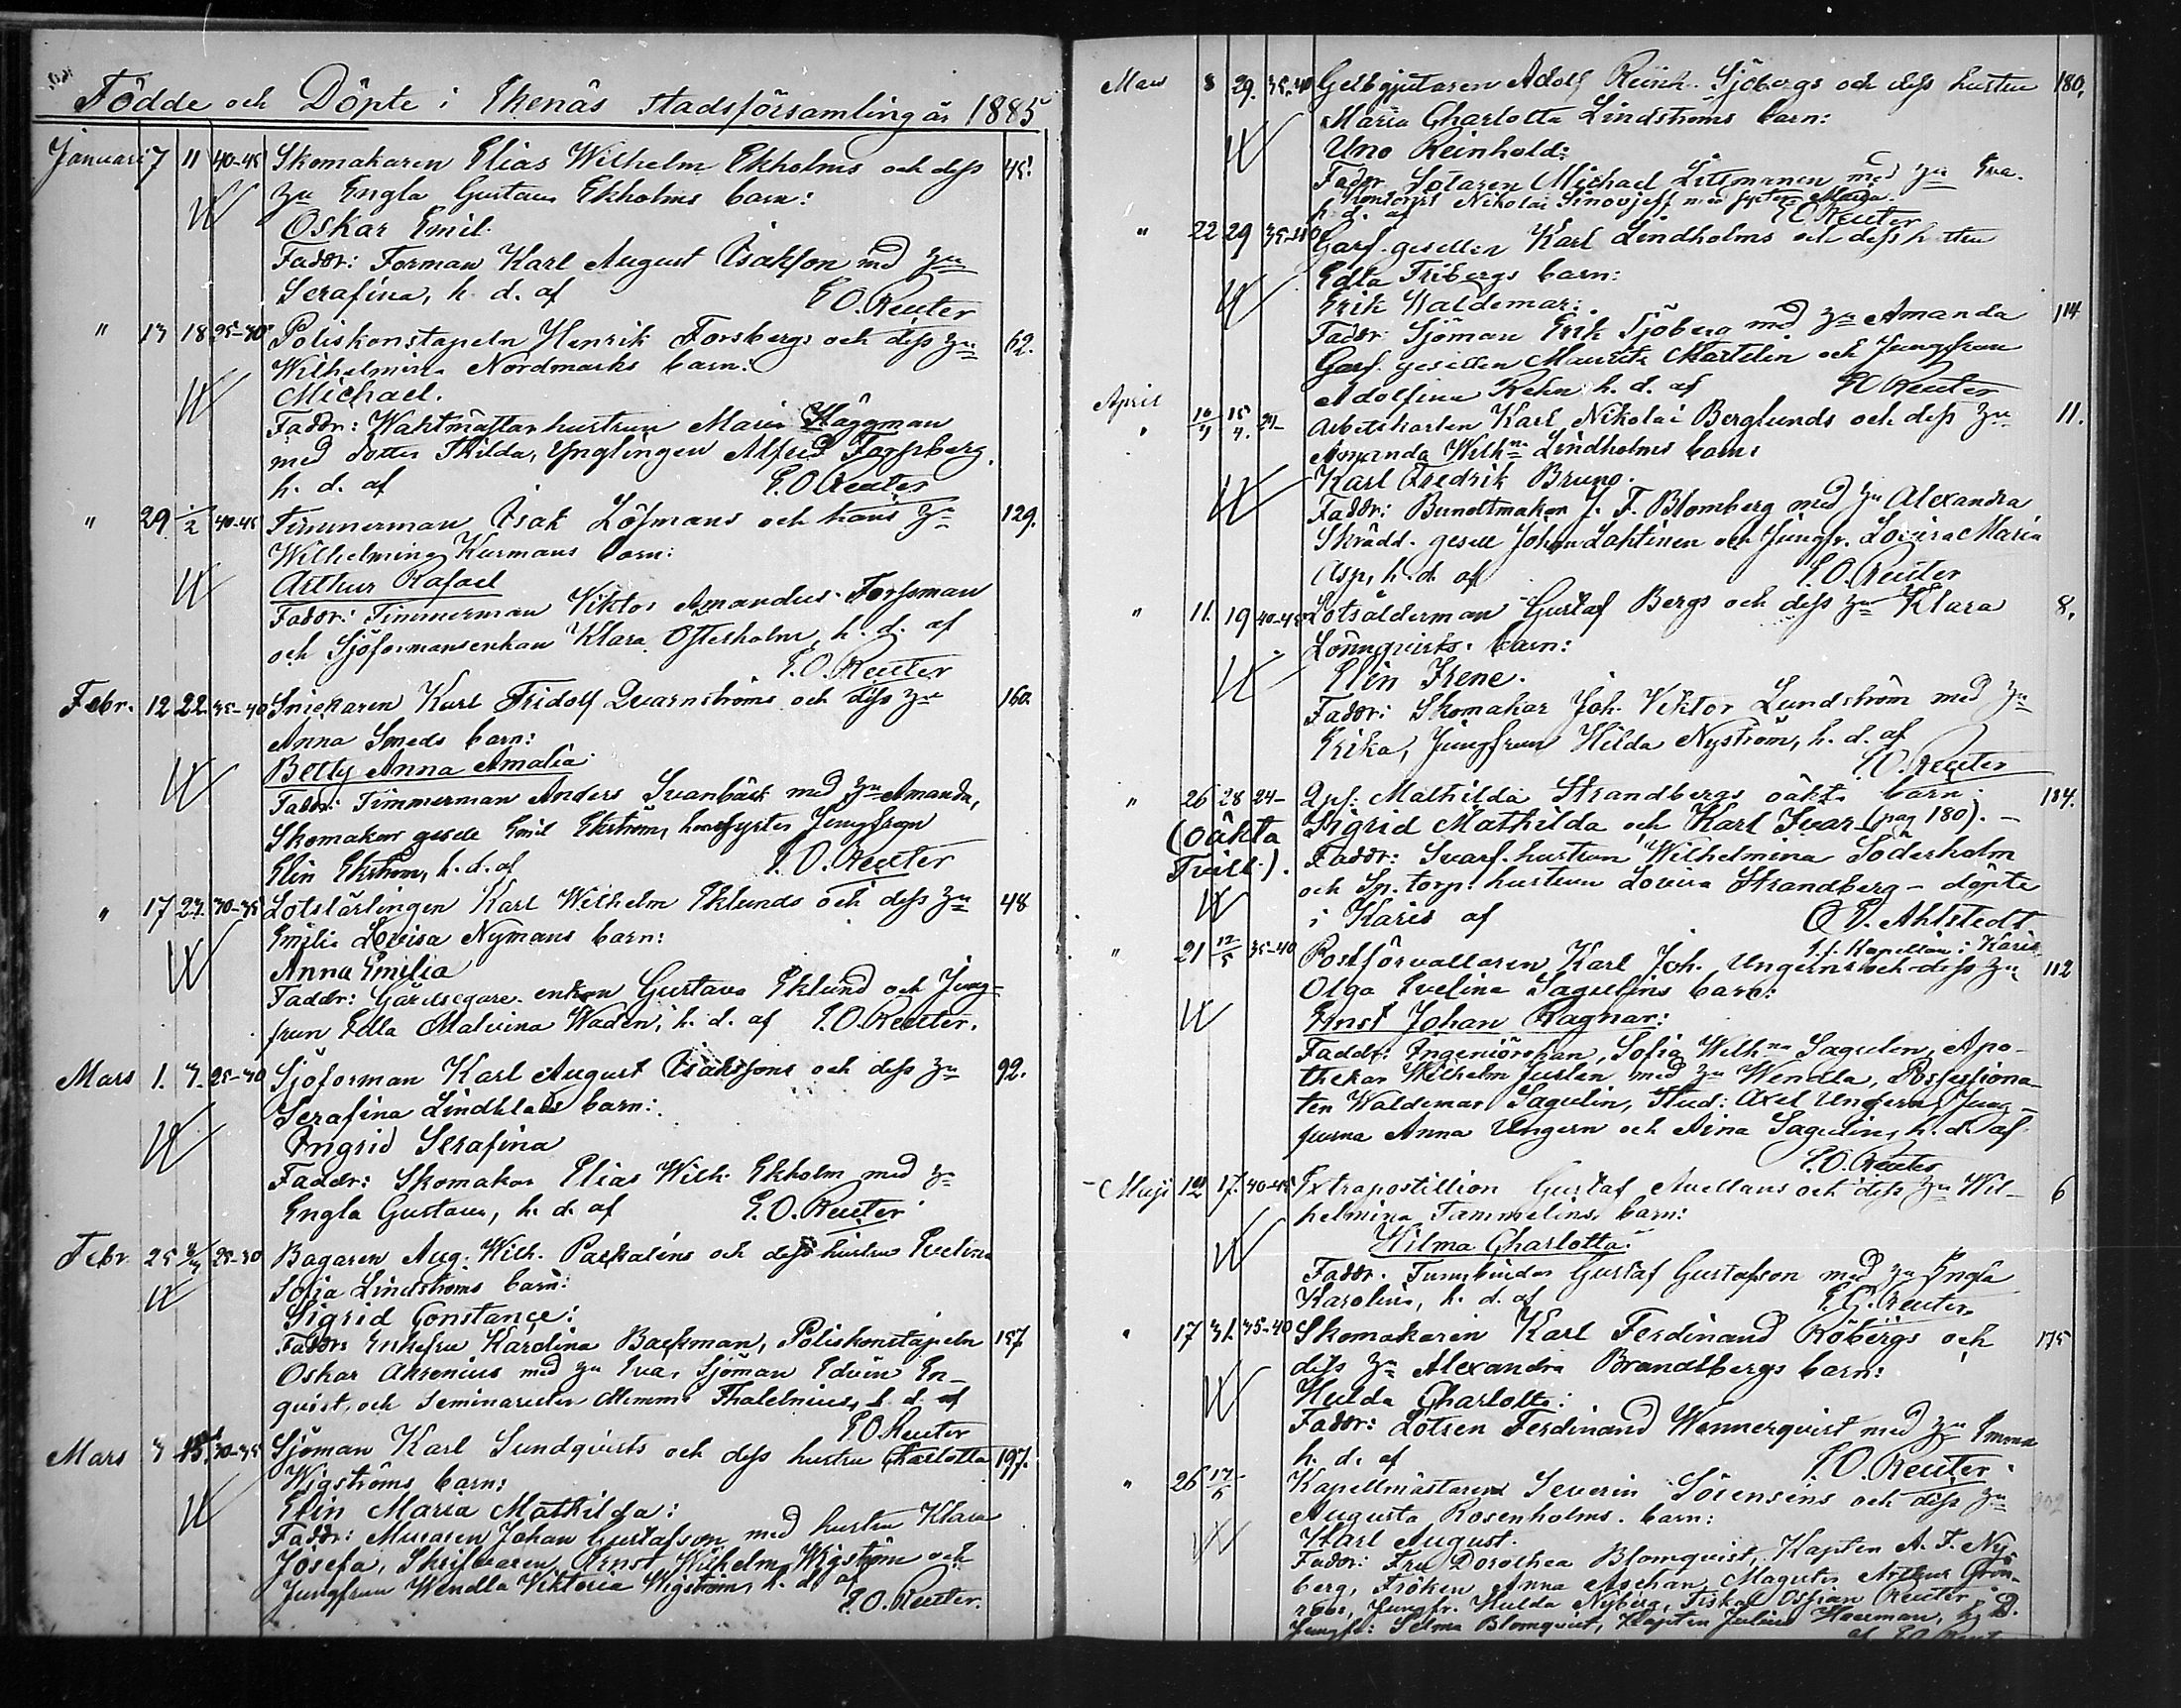 Födde och Döpte i Ekenäs Stadsförsamling år 1885
Januari 7 11 40-45 Skomakaren Elias Wilhelm Ekholms och dess 45.
Engla Gustava Ekholms barn:
Oskar Emil.
Faddr: Forman Karl August Isaksson med
Serafina, h. d. af E. O. Reuter
" 13 18 25-30 Poliskonstapeln Henrik Forsbergs och dess 62.
Wilhelmina Nordmarks barn:
Michael.
Faddr: Waktmästar hustrun Maria Häggman
med dotter Hilda, Ynglingen Alfred Forssberg.
h. d. af E. O. Reuter
" 29 1/2 40-45 Timmerman Isak Löfmans och hans 129.
Wilhelmina Kurmans barn:
Arthur Rafael
Faddr: Timmerman Viktor Amandus Forssman
och Sjöformansenkan Klara Österholm, h. d. af
E. O. Reuter
Febr. 12 22 35-40 Snickaren Karl Fridolf Quarnströms och dess 160.
Anna Smeds barn:
Betty Anna Amalia
Faddr: Timmerman Anders Svanbäck med Amanda,
Skomakar gesäll Emil Ekström, Jungfrun
Elin Ekström, h. d. af E. O. Reuter
" 17 23. 30-35 Lotslärlingen Karl Wilhelm Eklunds och dess 48
Emilia Lovisa Nymans barn:
Anna Emilia
Faddr: Gårdsegare enkan Gustava Eklund och Jung-
frun Edla Malvina Waden, h. d. af E. O. Reuter.
Mars 1. 3. 25-30 Sjöforman Karl August Isakssons och dess 92.
Serafina Lindblads barn:
Ingrid Serafina
Faddr: Skomakar Elias Wilh. Ekholm med
Engla Gustava, h. d. af E. O. Reuter
Febr. 25 25-30 Bagaren Aug. Wilh. och dess hustru Evelina
Sofia Lindströms barn:
Sigrid Constance:
Faddr: Enkefru Karolina Backman, Poliskonstapeln 157
Oskar Ahrenius med Eva, Sjöman Edvin En-
qvist, och Seminaristen h. d. af
E. O. Reuter
Mars 3 15 30-35 Sjöman Karl Sundqvists och dess hustru Charlotta 197.
Wigströms barn:
Elin Maria Mathilda:
Faddr: Muraren Johan Gustafson med hustru Klara
Josefa, Ernst Wilhelm Wigström och
Jungfrun Wendla Viktoria Wigström, h. d. af
E. O. Reuter.
Mars 8 29. 35-40 Gelbgjutaren Adolf Reinh. Sjöbergs och dess hustru 180.
Maria Charlotta Lindströms barn:
Uno Reinhold:
Faddr. Sotaren Michael med Eva.
Nikolai Sinovjeff med syster Maria
h. d. af E. O. Reuter
" 22 29 35-40 Garf. gesällen Karl Lindholms och dess hustru
Edla Fribergs barn:
Erik Waldemar:
Faddr: Sjöman Erik Sjöberg med Amanda 114
Garf. gesällen Mauritz Martelin och Jungfrun
Adolfina Rehn h. d. af E. O. Reuter
April 10/4 15/4. 24- Arbetskarlen Karl Nikolai Berglunds och dess 11.
Amanda Wilhna Lindholms barn:
Karl Fredrik Bruno.
Faddr: Buntmakar J. F. Blomberg med Alexandra
Skrädd. gesäll Johan Lahtinen och Jungfr. Lovisa Maria
Asp, h. d. af E. O. Reuter
" 11. 19 40-45 Lotsålderman Gustaf Bergs och dess Klara 8.
Lönnqvists barn:
Elin Irene.
Faddr: Skomakar Joh. Viktor Lundström med
Erika, Jungfrun Hilda Nyström, h. d. af
E. O. Reuter
" 26 28 24- Qpf: Mathilda Strandbergs oäkta barn: 184.
(oäkta Sigrid Mathilda och Karl Ivar (pag 180). -
Tvill.). Faddr: Svarf. hustrun Wilhelmina Söderholm
och Sp. torp. hustrun Lovisa Strandberg - döpte
i Karis af Ahlstedt
Kapellan i Karis
" 21 12/5 35-40 Postförvaltaren Karl Joh. Ungerns och dess 112
Olga Evelina Sagulins barn:
Ernst Johan Ragnar:
Faddr: Sofia Wilhna Sagulin, Apo-
thekar Wilhelm Juslin med Wendla, Possessiona-
ten Waldemar Sagulin, Stud: Axel Ungern, Jung-
frurna Anna Ungern och Aina Sagulin, h. d. af
E. O. Reuter
Maji 17. 40-45 Extrapostillion Gustaf Avellans och dess Wil- 6
helmina Tammelins barn:
Hilma Charlotta.
Faddr. Tunnbindar Gustaf Gustafson med Engla
Karolina, h. d. af E. O. Reuter.
" 17 31. 35-40 Skomakaren Karl Ferdinand Röbergs och 175
dess Alexandra Brandtbergs barn:
Hulda Charlotta:
Faddr: Lotsen Ferdinand Wennerqvist med Emma
h. d. af E. O. Reuter.
" 26 17/5 - Kapellmästaren Severin Sörensens och dess 202
Augusta Rosenholms barn:
Karl August.
Faddr: Fru Dorothea Blomqvist, Kapten A. F. Ny-
berg, Fröken Anna Aschan, Magister Arthur Grön-
roos, Jungfr. Hulda Nyberg, Fiskal Ossian Reuter,
Jungfr: Selma Blomqvist, Kapten Julius h. d.
af E. O. Reuter